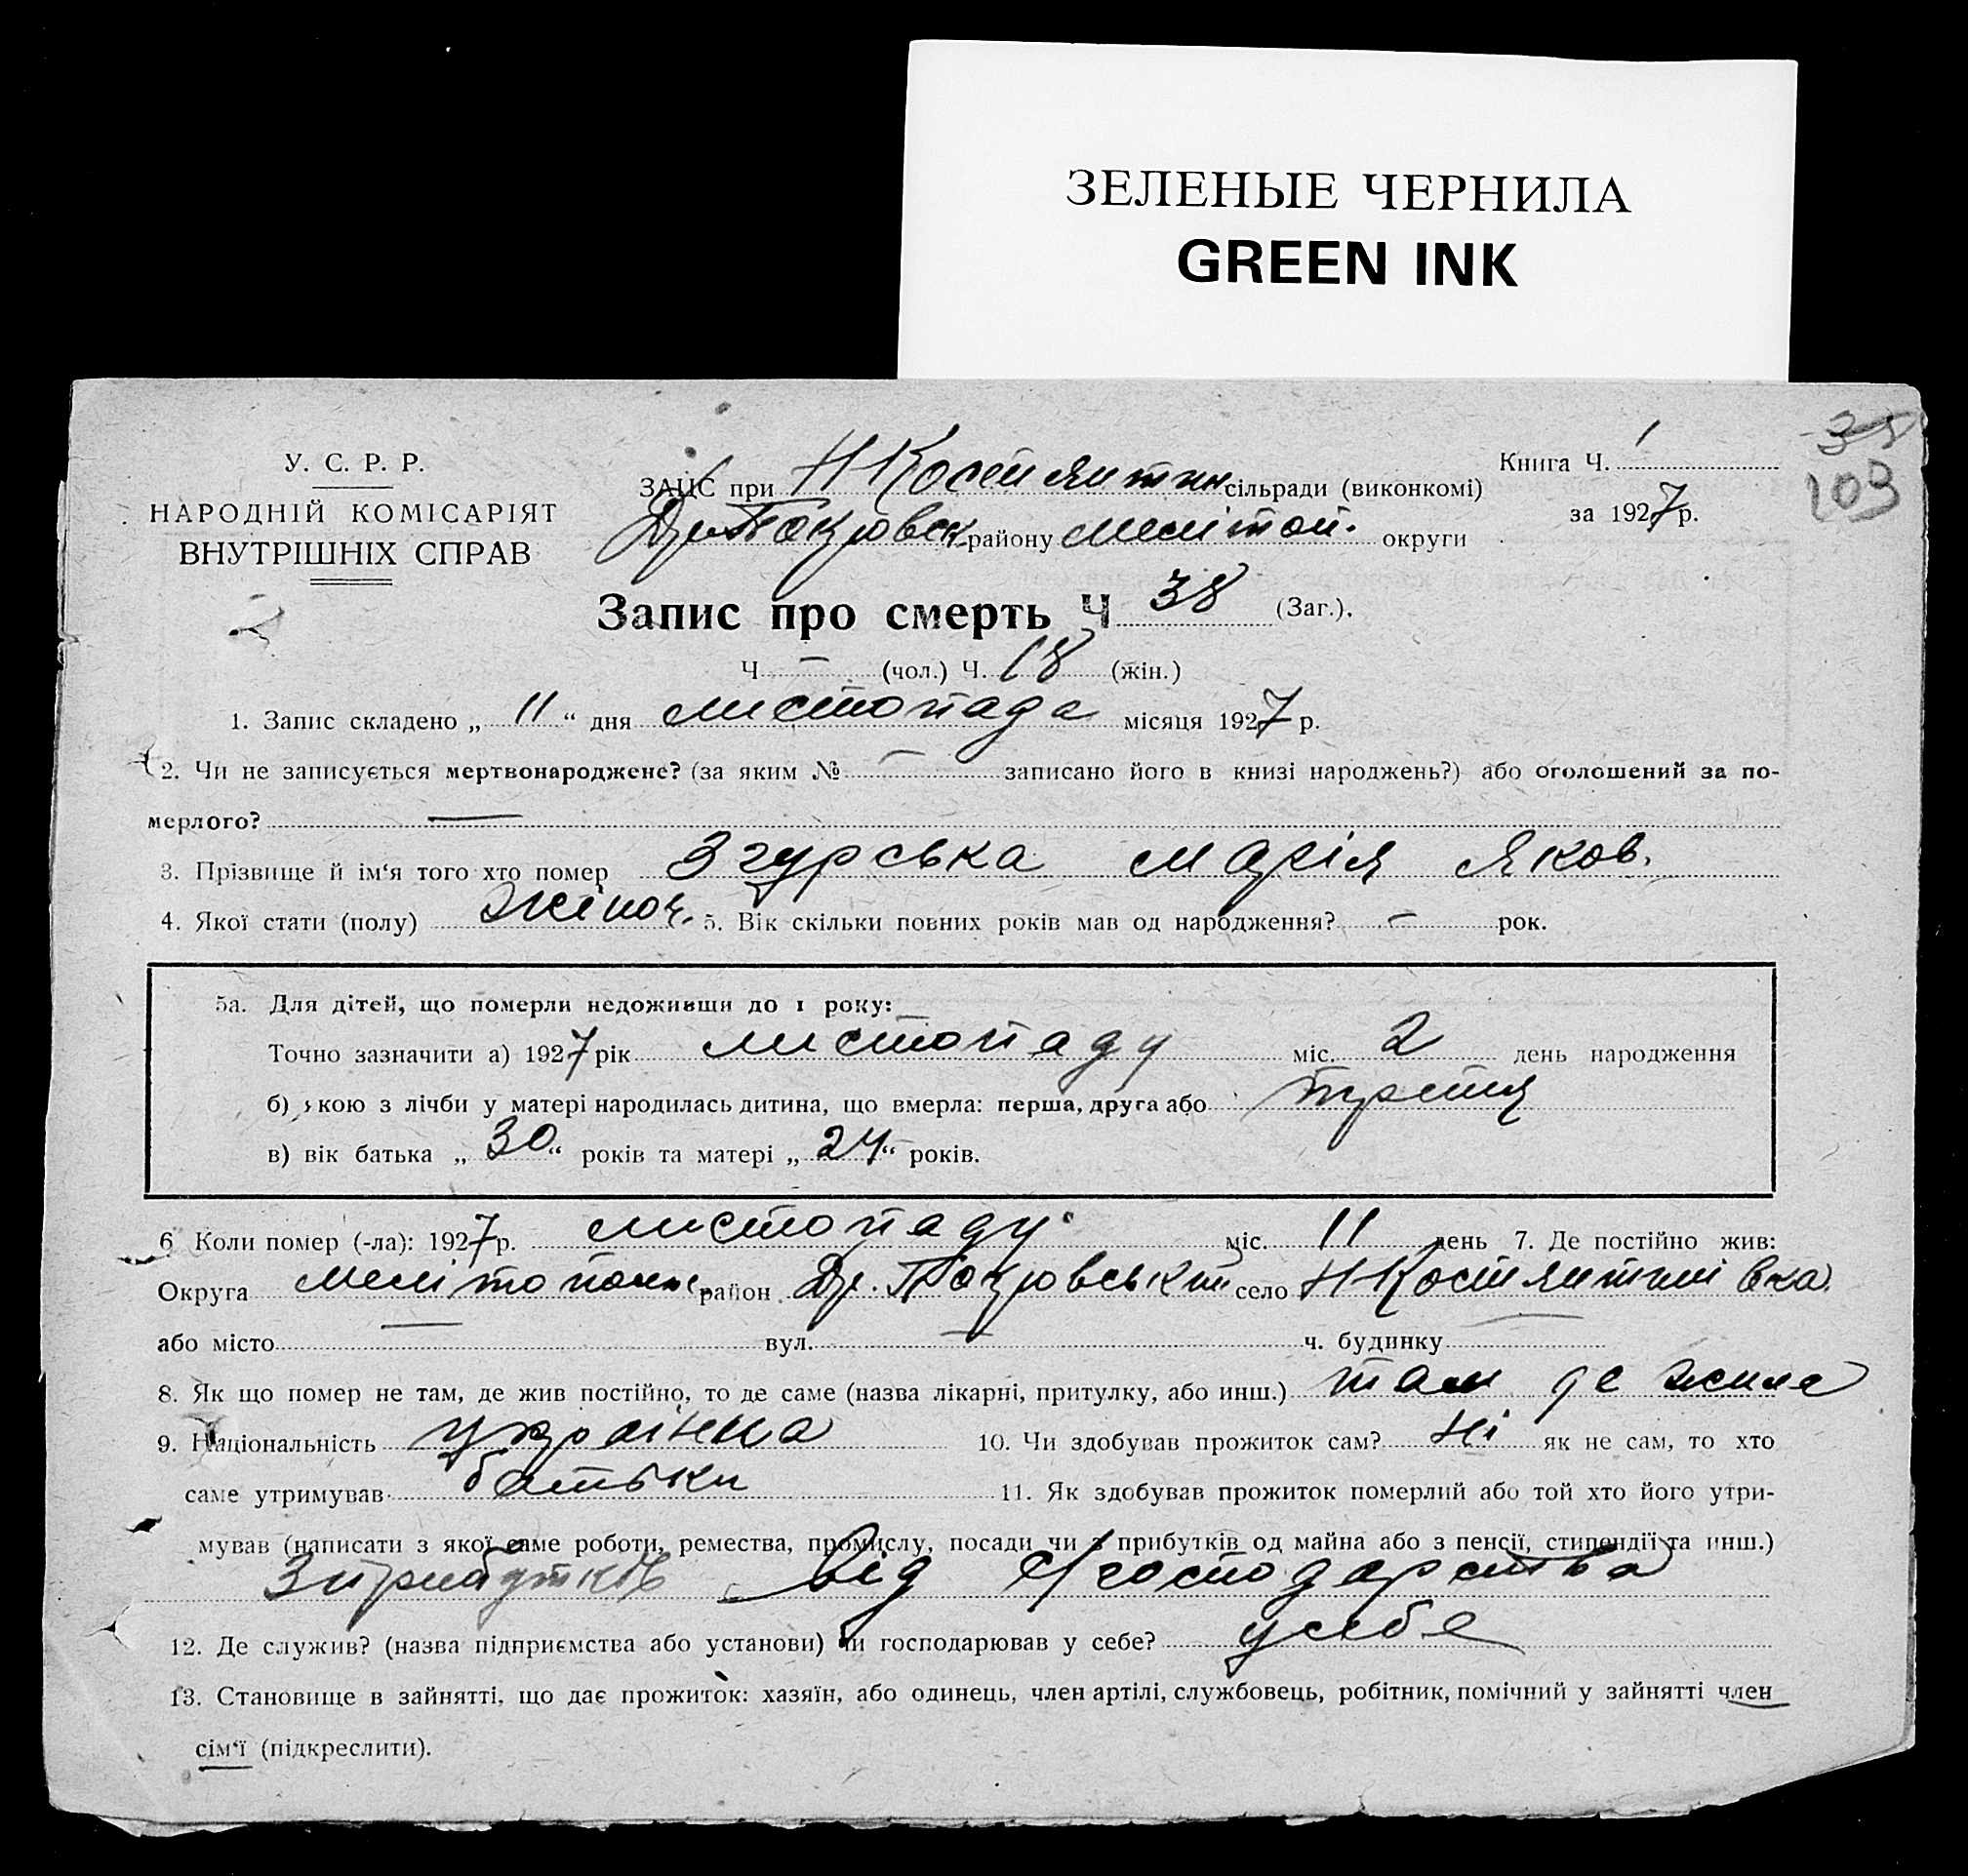 ЗЕЛЕНЫЕ ЧЕРНИЛА
GREEN INK
У. С. Р. Р.
НАРОДНІЙ КОМІСАРІЯТ
ВНУТРІШНІХ СПРАВ
ЗАЦС при Н Костянтин сільради (виконкомі)
Др. Покровськ району Меліт оп. округи
Книга Ч. 1
за 1927 р.
38
109
Запис про смерть Ч 38 (Заг.).
Ч — (чол.) Ч. 18 (жін.)
1. Запис складено „ 11 “ дня листопада місяця 1927 р.
2. Чи не записується мертвонароджене? (за яким № — записано його в книзі народжень?) або оголошений за по-
мерлого? —
3. Прізвище й ім‘я того хто помер Згурська Марія Яков.
4. Якої стати (полу) жіноч. 5. Вік скільки повних років мав од народження? — рок.
5а. Для дітей, що померли недоживши до 1 року:
Точно зазначити а) 1927 рік листопаду міс. 2 день народження
б) якою з лічби у матері народилась дитина, що вмерла: перша, друга або третя
в) вік батька „ 30 “ років та матері „ 24 “ років.
6 Коли помер (-ла): 1927 р. листопаду міс. 11 день 7. Де постійно жив:
Округа Мелітопольс. район Др. Покровський село Н Костянтинівка.
або місто — вул. — ч. будинку —
8. Як що помер не там, де жив постійно, то де саме (назва лікарні, притулку, або инш.) там де жила
9. Національність українка 10. Чи здобував прожиток сам? Ні як не сам, то хто
саме утримував батьки 11. Як здобував прожиток померлий або той хто його утри-
мував (написати з якої саме роботи, ремества, промислу, посади чи з прибутків од майна або з пенсії, стипендії та инш.)
З прибутків від с/господарства
12. Де служив? (назва підприємства або установи) чи господарював у себе? усебе
13. Становище в зайнятті, що дає прожиток: хазяїн, або одинець, член артілі, службовець, робітник, помічний у зайнятті член
сім‘ї (підкреслити).